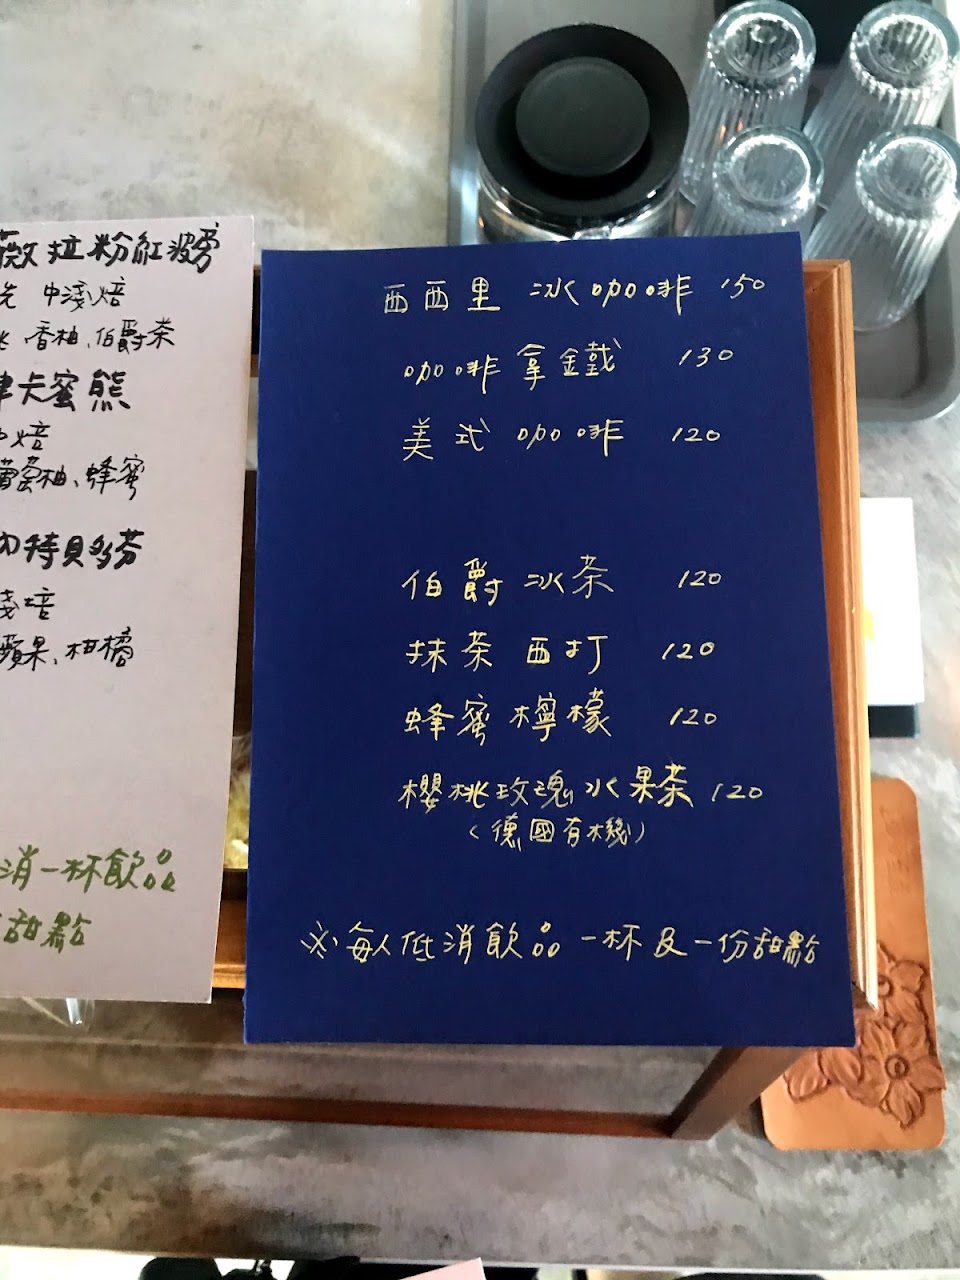 薇拉粉紅波旁
中淺焙
香柚、伯爵茶
卡蜜熊
焙
葡萄柚、蜂蜜
特貝多芬
淺焙
蘋果、柑橘
消一杯飲品
甜點
西西里 冰咖啡 150
咖啡拿鐵 130
美式咖啡 120
伯爵冰茶 120
抹茶西打 120
蜂蜜檸檬 120
櫻桃玫瑰水果茶 120
(德國有機)
※每人低消飲品一杯及一份甜點